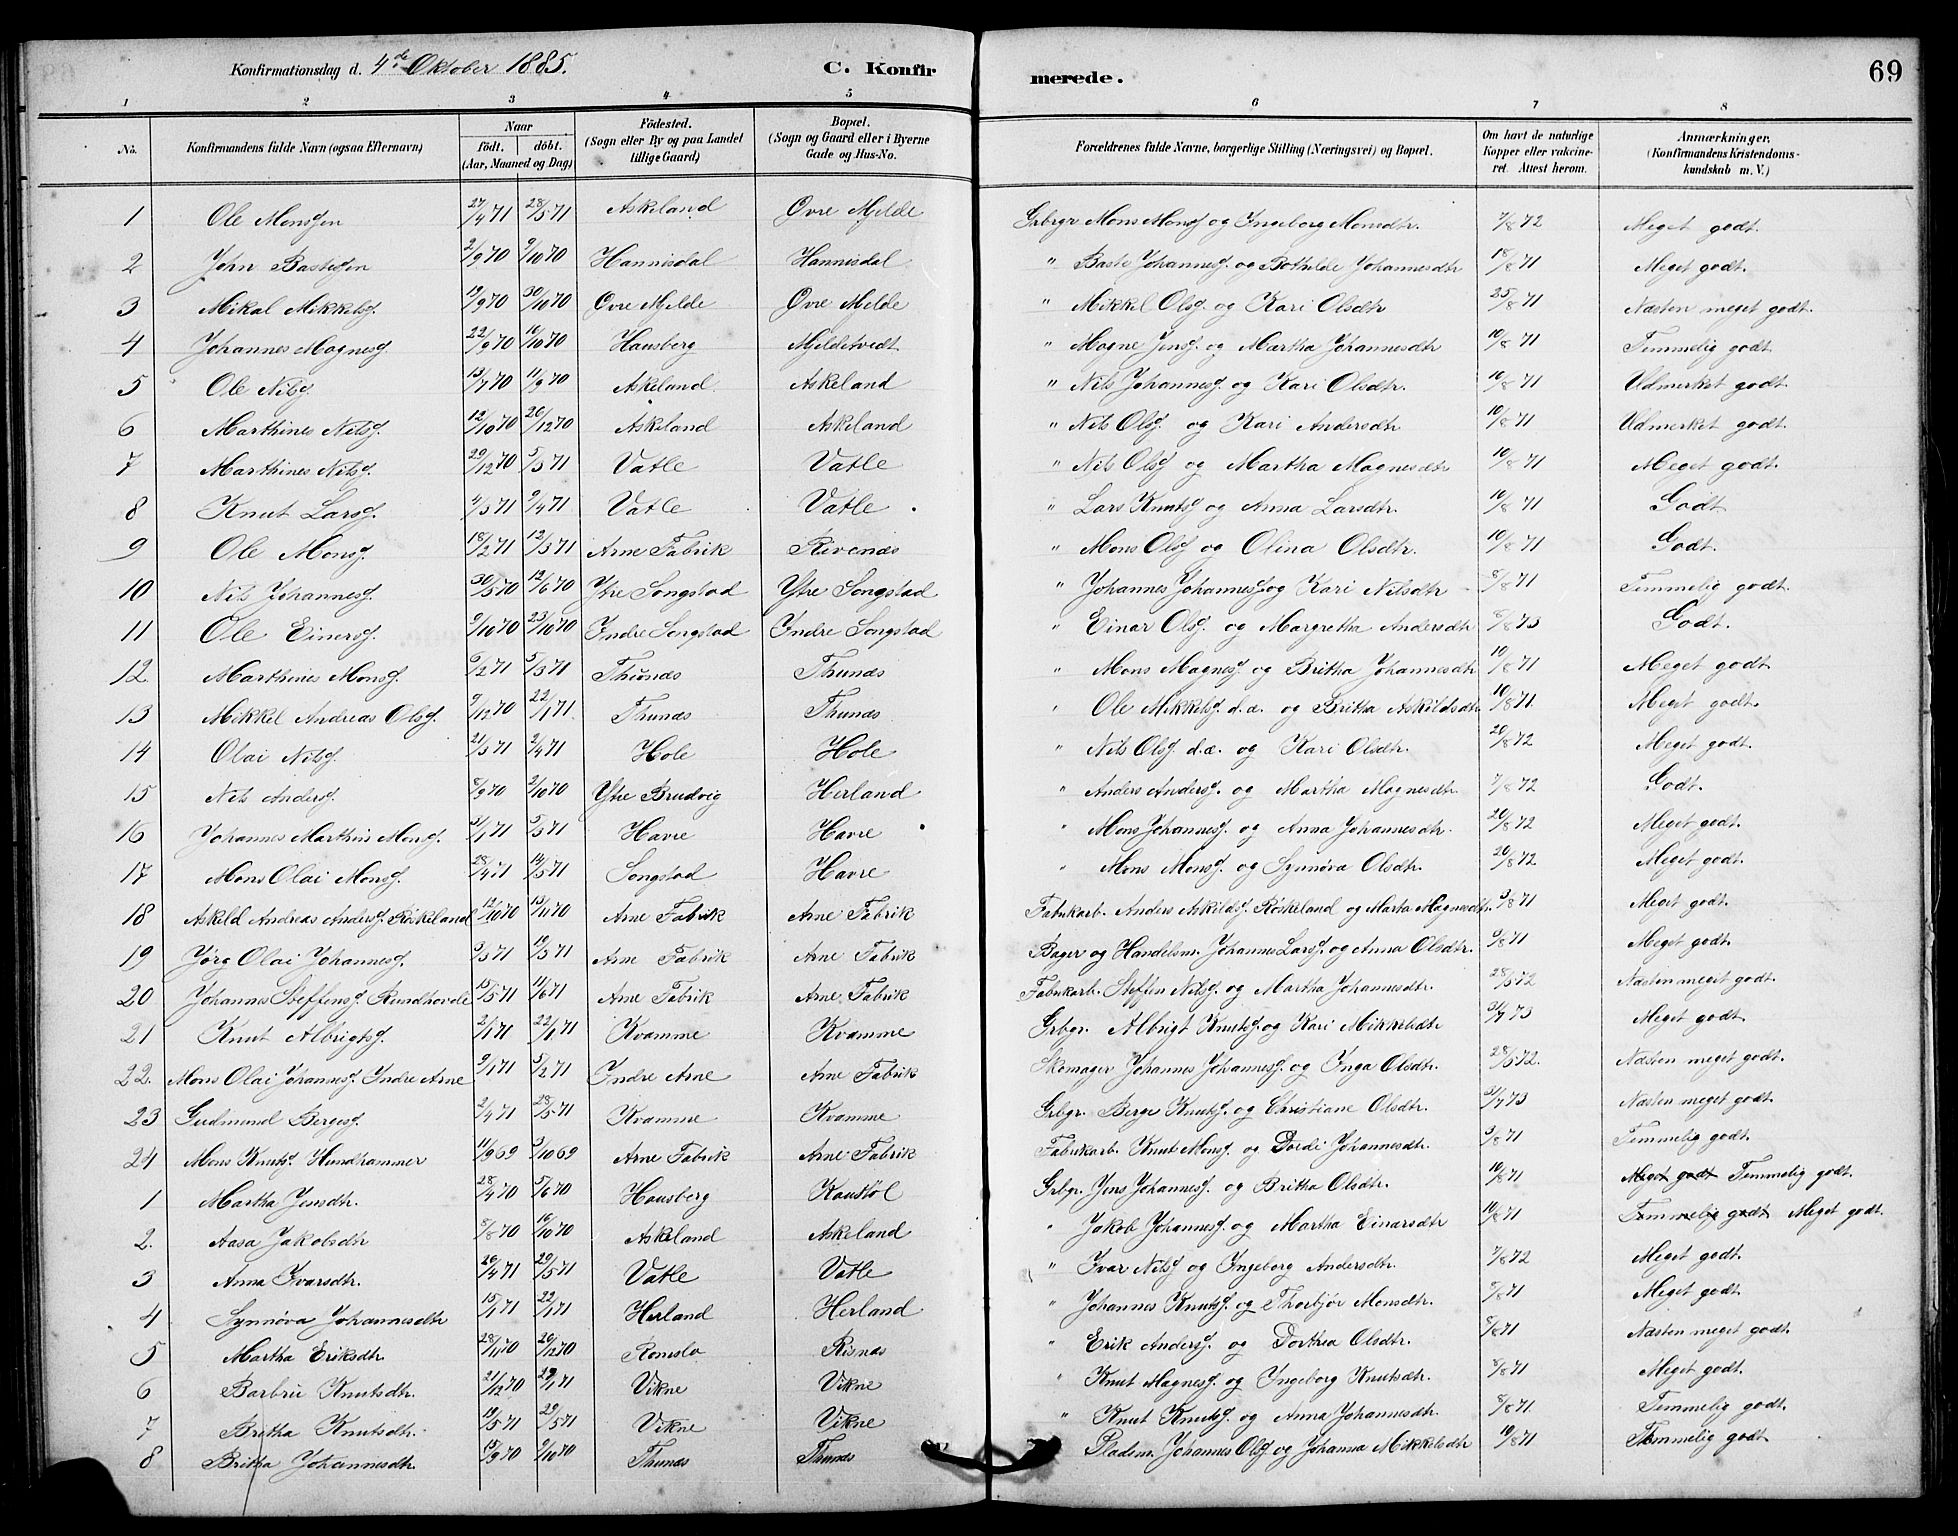 Konfirmationsdag d. 4de Oktober 1885. C. Konfirmerede. 69
1 2 3 4 5 6 7 8
No. Konfirmandens fulde Navn (ogsaa Efternavn) Naar födt. döbt. (Aar, Maaned og Dag) Födested. (Sogn eller By og paa Landet tillige Gaard) Bopæl. (Sogn og Gaard eller i Byerne Gade og Hus-No. Forældrenes fulde Navne, borgerlige Stilling (Næringsvei) og Bopæl. Om havt de naturlige Kopper eller vakcineret. Attest herom. Anmærkninger. (Konfirmandens Kristendomskundskab m. V.)
1 Ole Monssen 27/4 71 28/5 71 Askeland Øvre Mjelde Grbgr Mons Monss og Ingeborg Monsdtr. 7/8 72 Meget godt.
2 John Bastesen 2/9 70 9/10 70 Hannisdal Hannisdal " Baste Johanness. og Bothilde Johannesdtr 18/8 71 Meget godt.
3 Mikal Mikkels. 19/9 70 30/10 70 Øvre Mjelde Øvre Mjelde " Mikkel Olss og Kari Olsdtr 25/8 71 Næsten meget godt.
4 Johannes Magness. 22/9 70 16/10 70 Hausberg Mjeldetvedt " Magne Jenss. og Martha Johannesdtr 10/8 71 Temmelig godt.
5 Ole Nilss. 13/7 70 11/9 70 Askeland Askeland " Nils Johanness. og Kari Olsdtr. 10/8 71 Udmerket godt.
6 Marthines Nilss. 12/10 70 26/12 70 Askeland Askeland " Nils Olss. og Kari Andersdtr 10/8 71 Udmerket godt.
7 Marthines Nilss. 29/12 70 5/3 71 Vatle Vatle " Nils Olss og Martha Magnesdtr 10/8 71 Meget godt.
8 Knut Larss. 4/3 71 9/4 71 Vatle Vatle " Lars Knutss og Anna Larsdtr. 10/8 71 Godt
9 Ole Monss. 18/2 71 12/3 71 Arne Fabrik Rivenæs " Mons Olss og Olina Olsdtr. 10/8 71 Godt.
10 Nils Johanness. 30/5 70 12/6 70 Ytre Songstad Ytre Songstad " Johannes Johanness og Kari Nilsdtr 8/8 71 Temmelig godt.
11 Ole Einerss. 9/10 70 23/10 70 Indre Songstad Indre Songstad " Einar Olss. og Margretha Andersdtr 8/8 73 Godt.
12 Marthines Monss. 6/2 71 5/3 71 Thunæs Thunæs " Mons Magness og Britha Johannesdtr 10/8 71 Meget godt
13 Mikkel Andreas Olss. 9/12 70 22/1 71. Thunæs Thunæs " Ole Mikkelss. d.æ. og Britha Askildsdtr 10/8 71. Meget godt.
14 Olai Nilss. 21/3 71 2/4 71 Hole Hole " Nils Olss. d.æ. og Kari Olsdtr. 20/8 72 Meget godt.
15 Nils Anderss. 8/9 70 2/10 70 Ytre Brudvig Herland " Anders Anderss. og Martha Magnesdtr. 7/8 72 Godt.
16 Johannes Marthin Monss. 3/1 71 5/3 71 Havre Havre " Mons Johanness. og Anna Johannesdtr. 20/8 72 Meget godt.
17 Mons Olai Monss. 28/4 71 14/5 71 Songstad Havre " Mons Monss. og Synnøva Olsdtr. 20/8 72. Meget godt.
18 Askeld Andreas Anderss. Röskeland 12/10 70 13/11 70 Arne Fabrik Arne Fabrik Fabrikarb. Anders Askilds. Röskeland og Marta Magnesdtr. 3/8 71 Meget godt.
19 Jörg Olai Johanness. 5/3 71 19/3 71 Arne Fabrik Arne Fabrik Bager og Handelsm. Johannes Larss. og Anna Olsdtr. 9/8 71 Meget godt.
20 Johannes Steffenss. Rundhovde 15/5 71 11/6 71 Arne Fabrik Arne Fabrik Fabrikarb. Steffen Nilss. og Martha Johannesdtr. 28/5 72 Næsten meget godt.
21 Knut Albrigtss. 2/1 71 22/1 71 Kvamme Kvamme Grbgr. Albrigt Knutss og Kari Mikkelsdtr 31/7 73 Meget godt.
22. Mons Olai Johanness. Indre Arne 9/1 71 5/2 71 Indre Arne Arne Fabrik Skomager Johannes Johanness. og Inga Olsdtr. 28/5 72. Næsten meget godt.
23 Gudmund Bergess. 2/4 71 28/5 71 Kvamme Kvamme Grbgr. Berge Knutss. og Christiane Olsdtr. 31/7 73 Næsten meget godt.
24 Mons Knutss. Hundhammer 11/9 69 3/10 69 Arne Fabrik Arne Fabrik Fabrikarb. Knut Monss. og Dordi Johannesdtr. 3/8 71 Temmelig godt.
1 Martha Jensdtr. 28/4 70 5/6 70 Hausberg Kaustøl Grbgr. Jens Johanness. og Britha Olsdtr. 10/8 71 Meget godt Temmelig godt.
2. Aasa Jakobsdtr 8/8 70 16/10 70 Askeland Askeland " Jakob Johanness. og Martha Einarsdtr 10/8 71 Temmelig godt Meget godt.
3 Anna Ivarsdtr. 26/4 71 29/5 71 Vatle Vatle " Ivar Nilss og Ingeborg Andersdtr. 7/8 72 Meget godt.
4 Synnøva Johannesdtr 15/1 71 22/1 71 Herland Herland " Johannes Knutss. og Thorbjör Monsdtr. 5/8 71 Meget godt.
5 Martha Eriksdtr. 28/11 70 26/12 70 Romslo Risnæs " Erik Anderss. og Dorthea Olsdtr. 8/8 71 Næsten meget godt.
6 Barbru Knutsdtr. 21/12 70 29/1 71 Vikne Vikne " Knut Magness. og Ingeborg Knutsdtr. 8/8 71 Meget godt.
7 Britha Knutsdtr. 19/5 71 29/5 71 Vikne Vikne " Knut Knutss. og Anna Johannesdtr. 8/8 71 Temmelig godt.
8 Britha Johannesdtr. 15/9 70 9/10 70 Thunæs Thunæs Pladsm. Johannes Olss og Johanna Mikkelsdtr 10/8 71 Temmelig godt